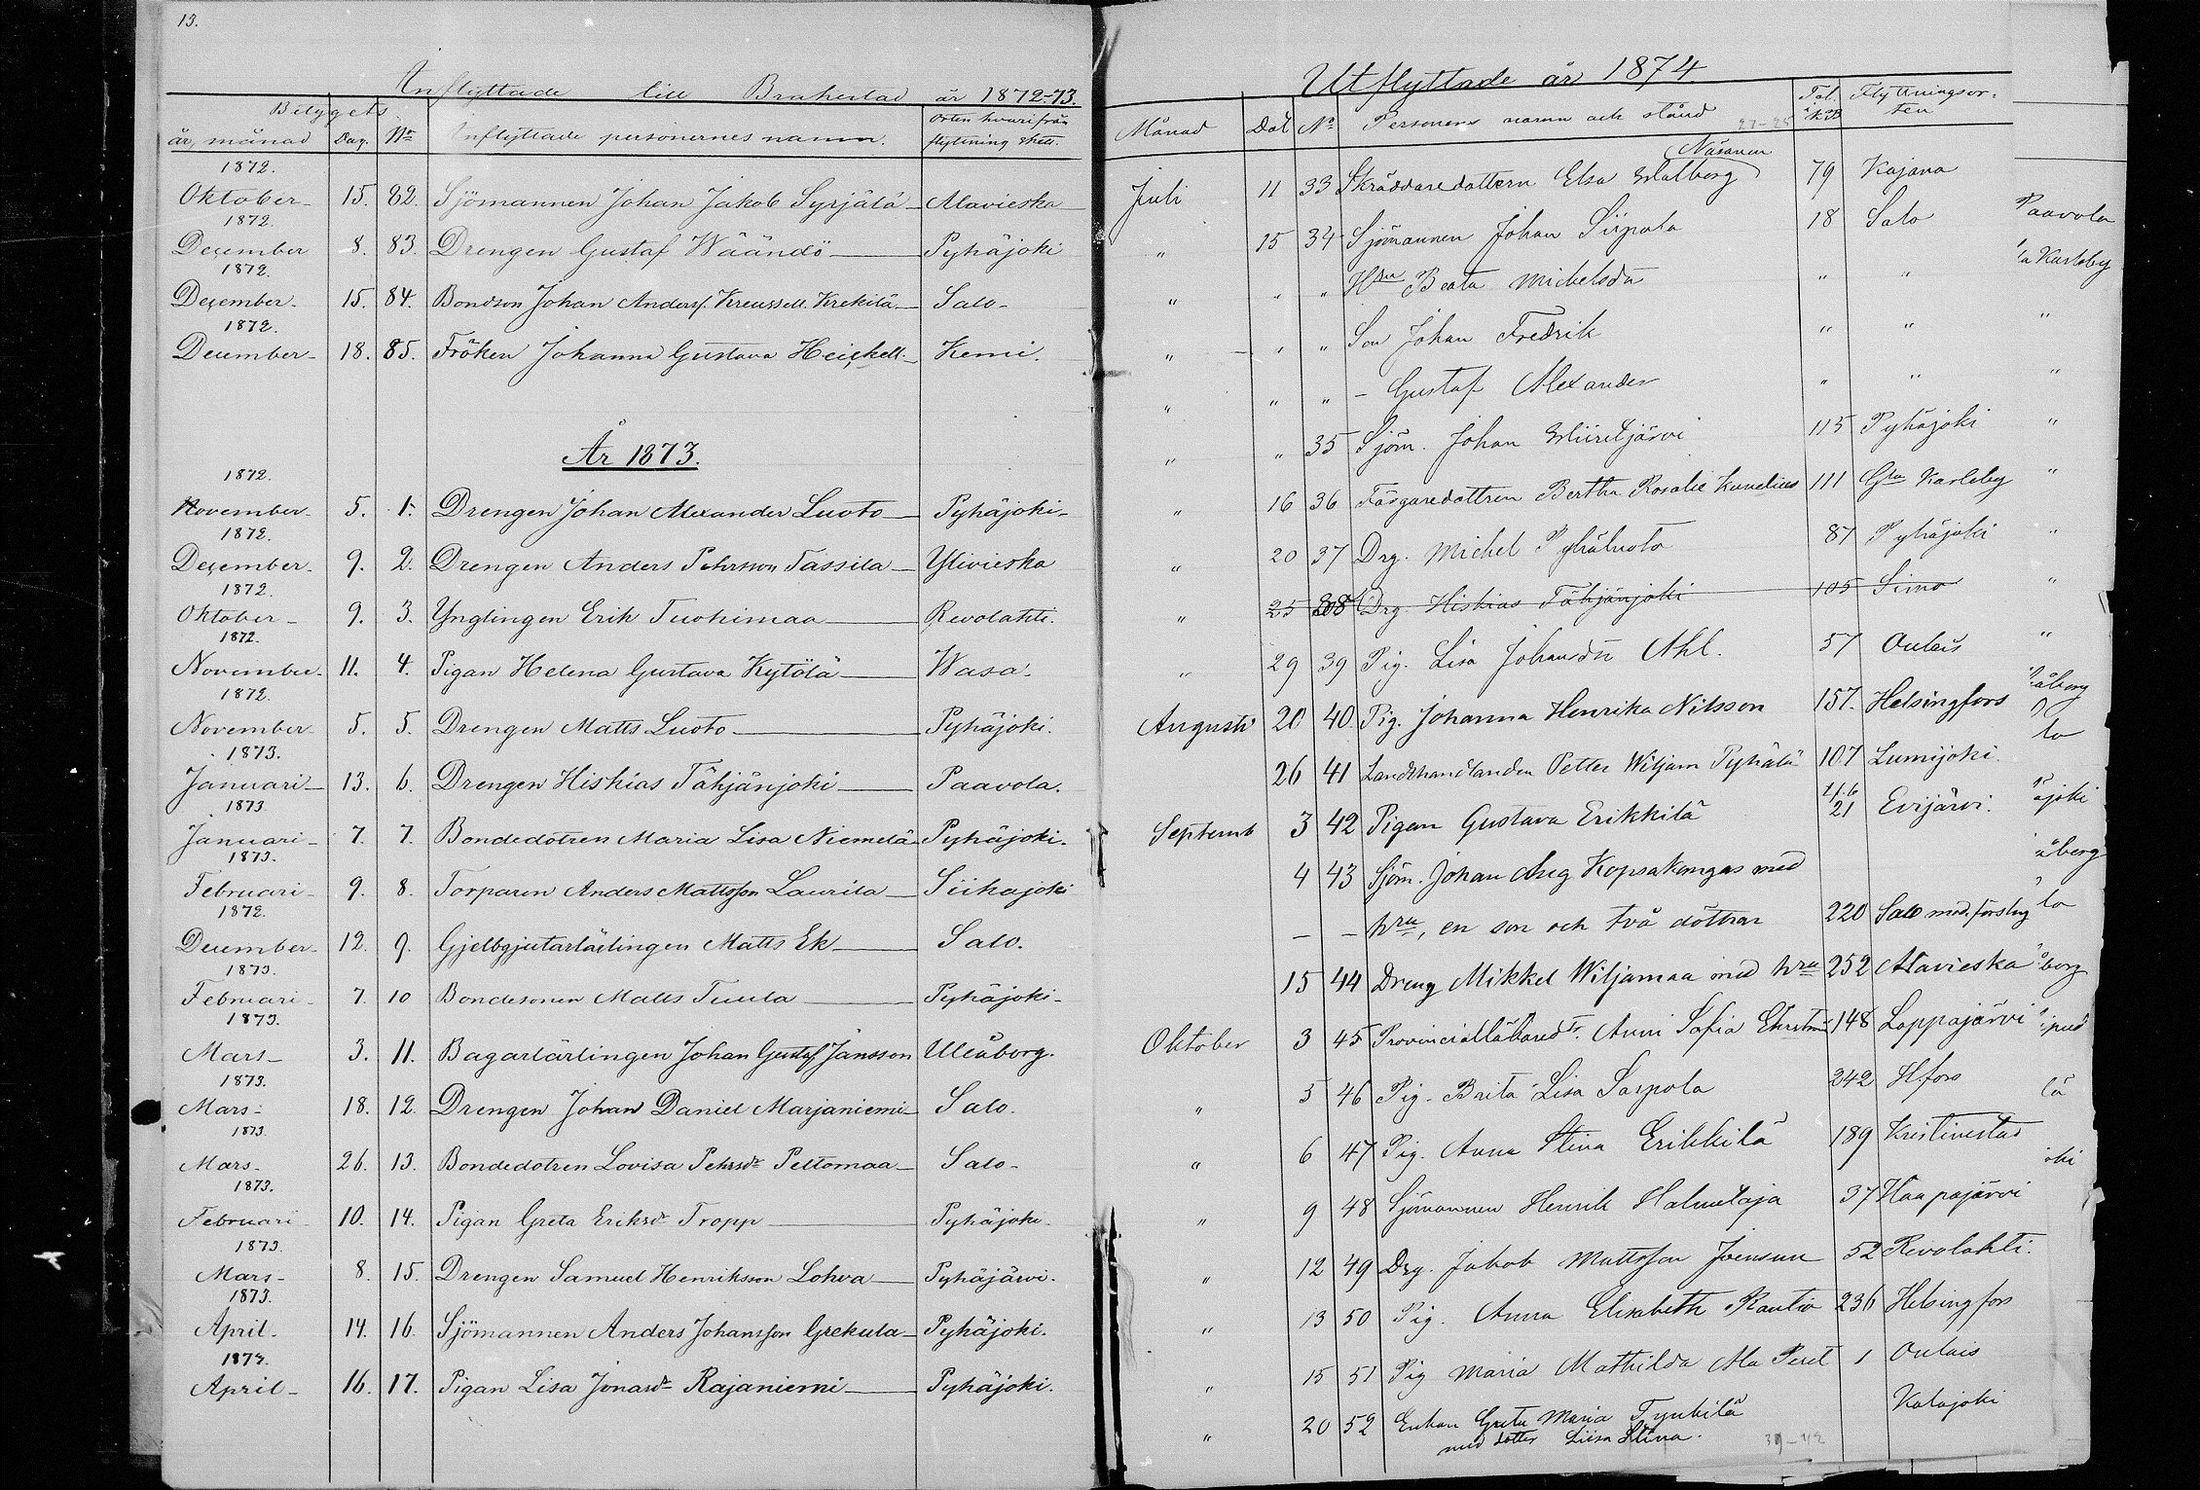 13.
Inflyttade till Brahestad år 1872-73.
Betygets
år, månad Dag. No Inflyttade personernes namn. Orten hvarifrån flyttning skett.
1872.
Oktober 15. 82. Sjömannen Johan Jakob Syrjälä Alavieska
1872.
December 8. 83. Drengen Gustaf Wäändö Pyhäjoki
1872.
December. 15. 84. Bondson Johan Andersf. Krekilä Salo.
1872.
December 18. 85. Fröken Johanna Gustava Heickell Kemi.
År 1873.
1872.
November 5. 1. Drengen Johan Alexander Luoto Pyhäjoki
1872.
December 9. 2. Drengen Anders Pehrsson Tassila Ylivieska
1872.
Oktober 9. 3. Ynglingen Erik Tuohimaa Revolahti.
1872.
November. 11. 4. Pigan Helena Gustava Kytölä Wasa.
1872.
November 5. 5. Drengen Matts Luoto Pyhäjoki.
1873.
Januari 13. 6. Drengen Hiskias Tähjänjoki Paavola.
1873
Januari 7. 7. Bondedotren Maria Lisa Niemelä Pyhäjoki.
1873.
Februari 9. 8. Torparen Anders Mattsson Laurila Siikajoki
1872.
December 12. 9. Gjelbgjutarlärlingen Matts Ek Salo.
1873.
Februari 7. 10 Bondesonen Matts Tuula Pyhäjoki
1873.
Mars 3. 11. Bagarlärlingen Johan Gustaf Jansson Uleåborg.
1873.
Mars 18. 12. Drengen Johan Daniel Marjaniemi Salo.
1873.
Mars 26. 13. Bondedotren Lovisa Pehrsdr Peltomaa Salo
1873.
Februari 10. 14. Pigan Greta Eriksdr Tropp Pyhäjoki
1873.
Mars 8. 15. Drengen Samuel Henriksson Lohva Pyhäjärvi.
1873.
April. 14. 16. Sjömannen Anders Johansson Grekula Pyhäjoki.
1873.
April 16. 17. Pigan Lisa Jonasdr Rajaniemi Pyhäjoki.
Utflyttade år 1874
Månad Dat No Personens namn och stånd Flyttningsorten
Näsanen
Juli 11 33 Skräddaredottern Elsa Walborg 79 Kajana
" 15 34 Sjömannen Johan Siipola 18 Salo Paavola
" " " Hru Beata Michelsdr " " Karleby
" " " Son Johan Fredrik " " "
" " " - Gustaf Alexander " " "
" " 35 Sjöm. Johan 115 Pyhäjoki "
" 16 36 Färgaredottren Bertha Rosalie Kunelius 111 Gla Karleby "
" 20 37 Drg. Michel Pyhäluoto 87 Pyhäjoki "
" 25 38 Drg. Hiskias Tähjänjoki 105 Simo "
" 29 39 Pig. Lisa Johansdr Ahl. 57 Oulais "
Augusti 20 40 Pig. Johanna Henrika Nilsson 157. Helsingfors
26 41 Landthandlanden Petter Wiljam Pyhälä 107 Lumijoki. lo
Septemb 3 42 Pigan Gustava Erikkilä 21 Evijärvi. joki
4 43 Sjöm. Johan Aug Kopsakangas med åberg
- - hru, en son och två döttrar 220 Salo lo
15 44 Dreng Mikkel Wiljamaa med hru 252 Alavieska borg
Oktober 3 45 Anni Sofia 148 Lappajärvi
" 5 46 Pig. Brita Lisa Sarpola 242 Hfors lä
" 6 47 Pig. Anna Stina Erikkilä 189 Kristinestad
" 9 48 Sjömannen Henrik Halmetoja 37 Haapajärvi
" 12 49 Drg. Jakob Mattsson Joensuu 52 Revolahti.
" 13 50 Pig. Anna Elisabeth Rautio 236 Helsingfors
" 15 51 Pig Maria Mathilda Ala Peret 1 Oulais
" 20 52 Enkan Greta Maria Tynkilä Kalajoki
med dotter Liisa Stina. 39-42